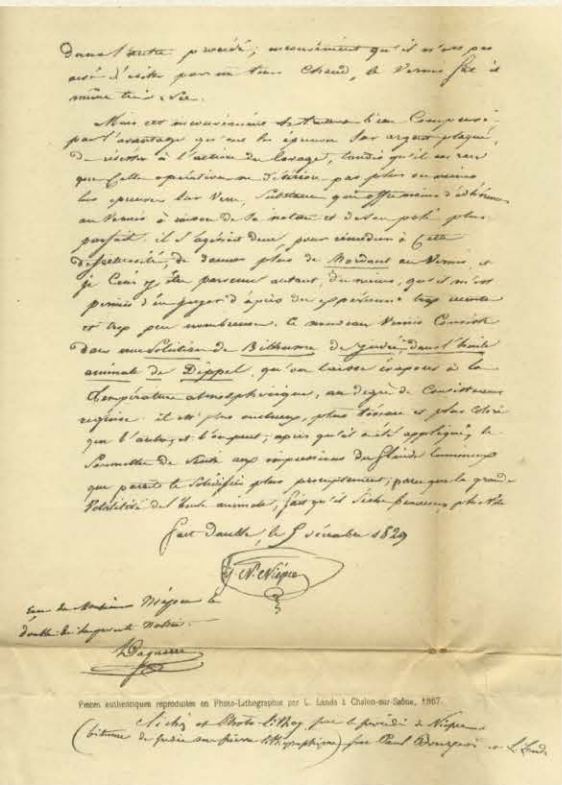 dans l'autre procédé; inconvénient qu'il n'est pas
aisé d'éviter par un tems chaud, le Vernis fut il
même très-sec.
Mais cet inconvénient se trouve bien compensé
par l'avantage qu'ont les épreuves sur argent plaqué,
de résister à l'action du lavage, tandis qu'il est rare
que cette opération ne détériore pas plus ou moins
les épreuves sur Verre, substance qui offre moins d'adhérence
au Vernis à raison de sa nature et de son poli plus
parfait. il s'agirait donc, pour remédier à cette
défectuosité, de donner plus de Mordant au Vernis, et
je crois y être parvenu autant, du moins, qu'il m'est
permis d'en juger d'après des expériences trop récentes
et trop peu nombreuses. Ce nouveau Vernis consiste
dans une solution de Bithume de judée, dans l'huile
animale de Dippel, qu'on laisse évaporer à la
température atmosphérique, au degré de consistance
requise. il est plus onctueux, plus tenace et plus coloré
que l'autre; et l'on peut, après qu'il a été appliqué, le
soumettre de suite aux impressions du fluide lumineux
qui paraît le solidifier plus promptement; parce que la grande
Volatilité de l'huile animale, fait qu'il sèche beaucoup plus vite
fait double, le 5 décembre 1829
J. N. Niépce
double
Daguerre
Pièces authentiques reproduites en Photo-Lithographie par L. Landa à Chalon-sur-Saône, 1867.
Clichés et Photo-lithog par le procédé de Niépce
(bitume de judée sur pierre lithographique) par Paul et L. Landa